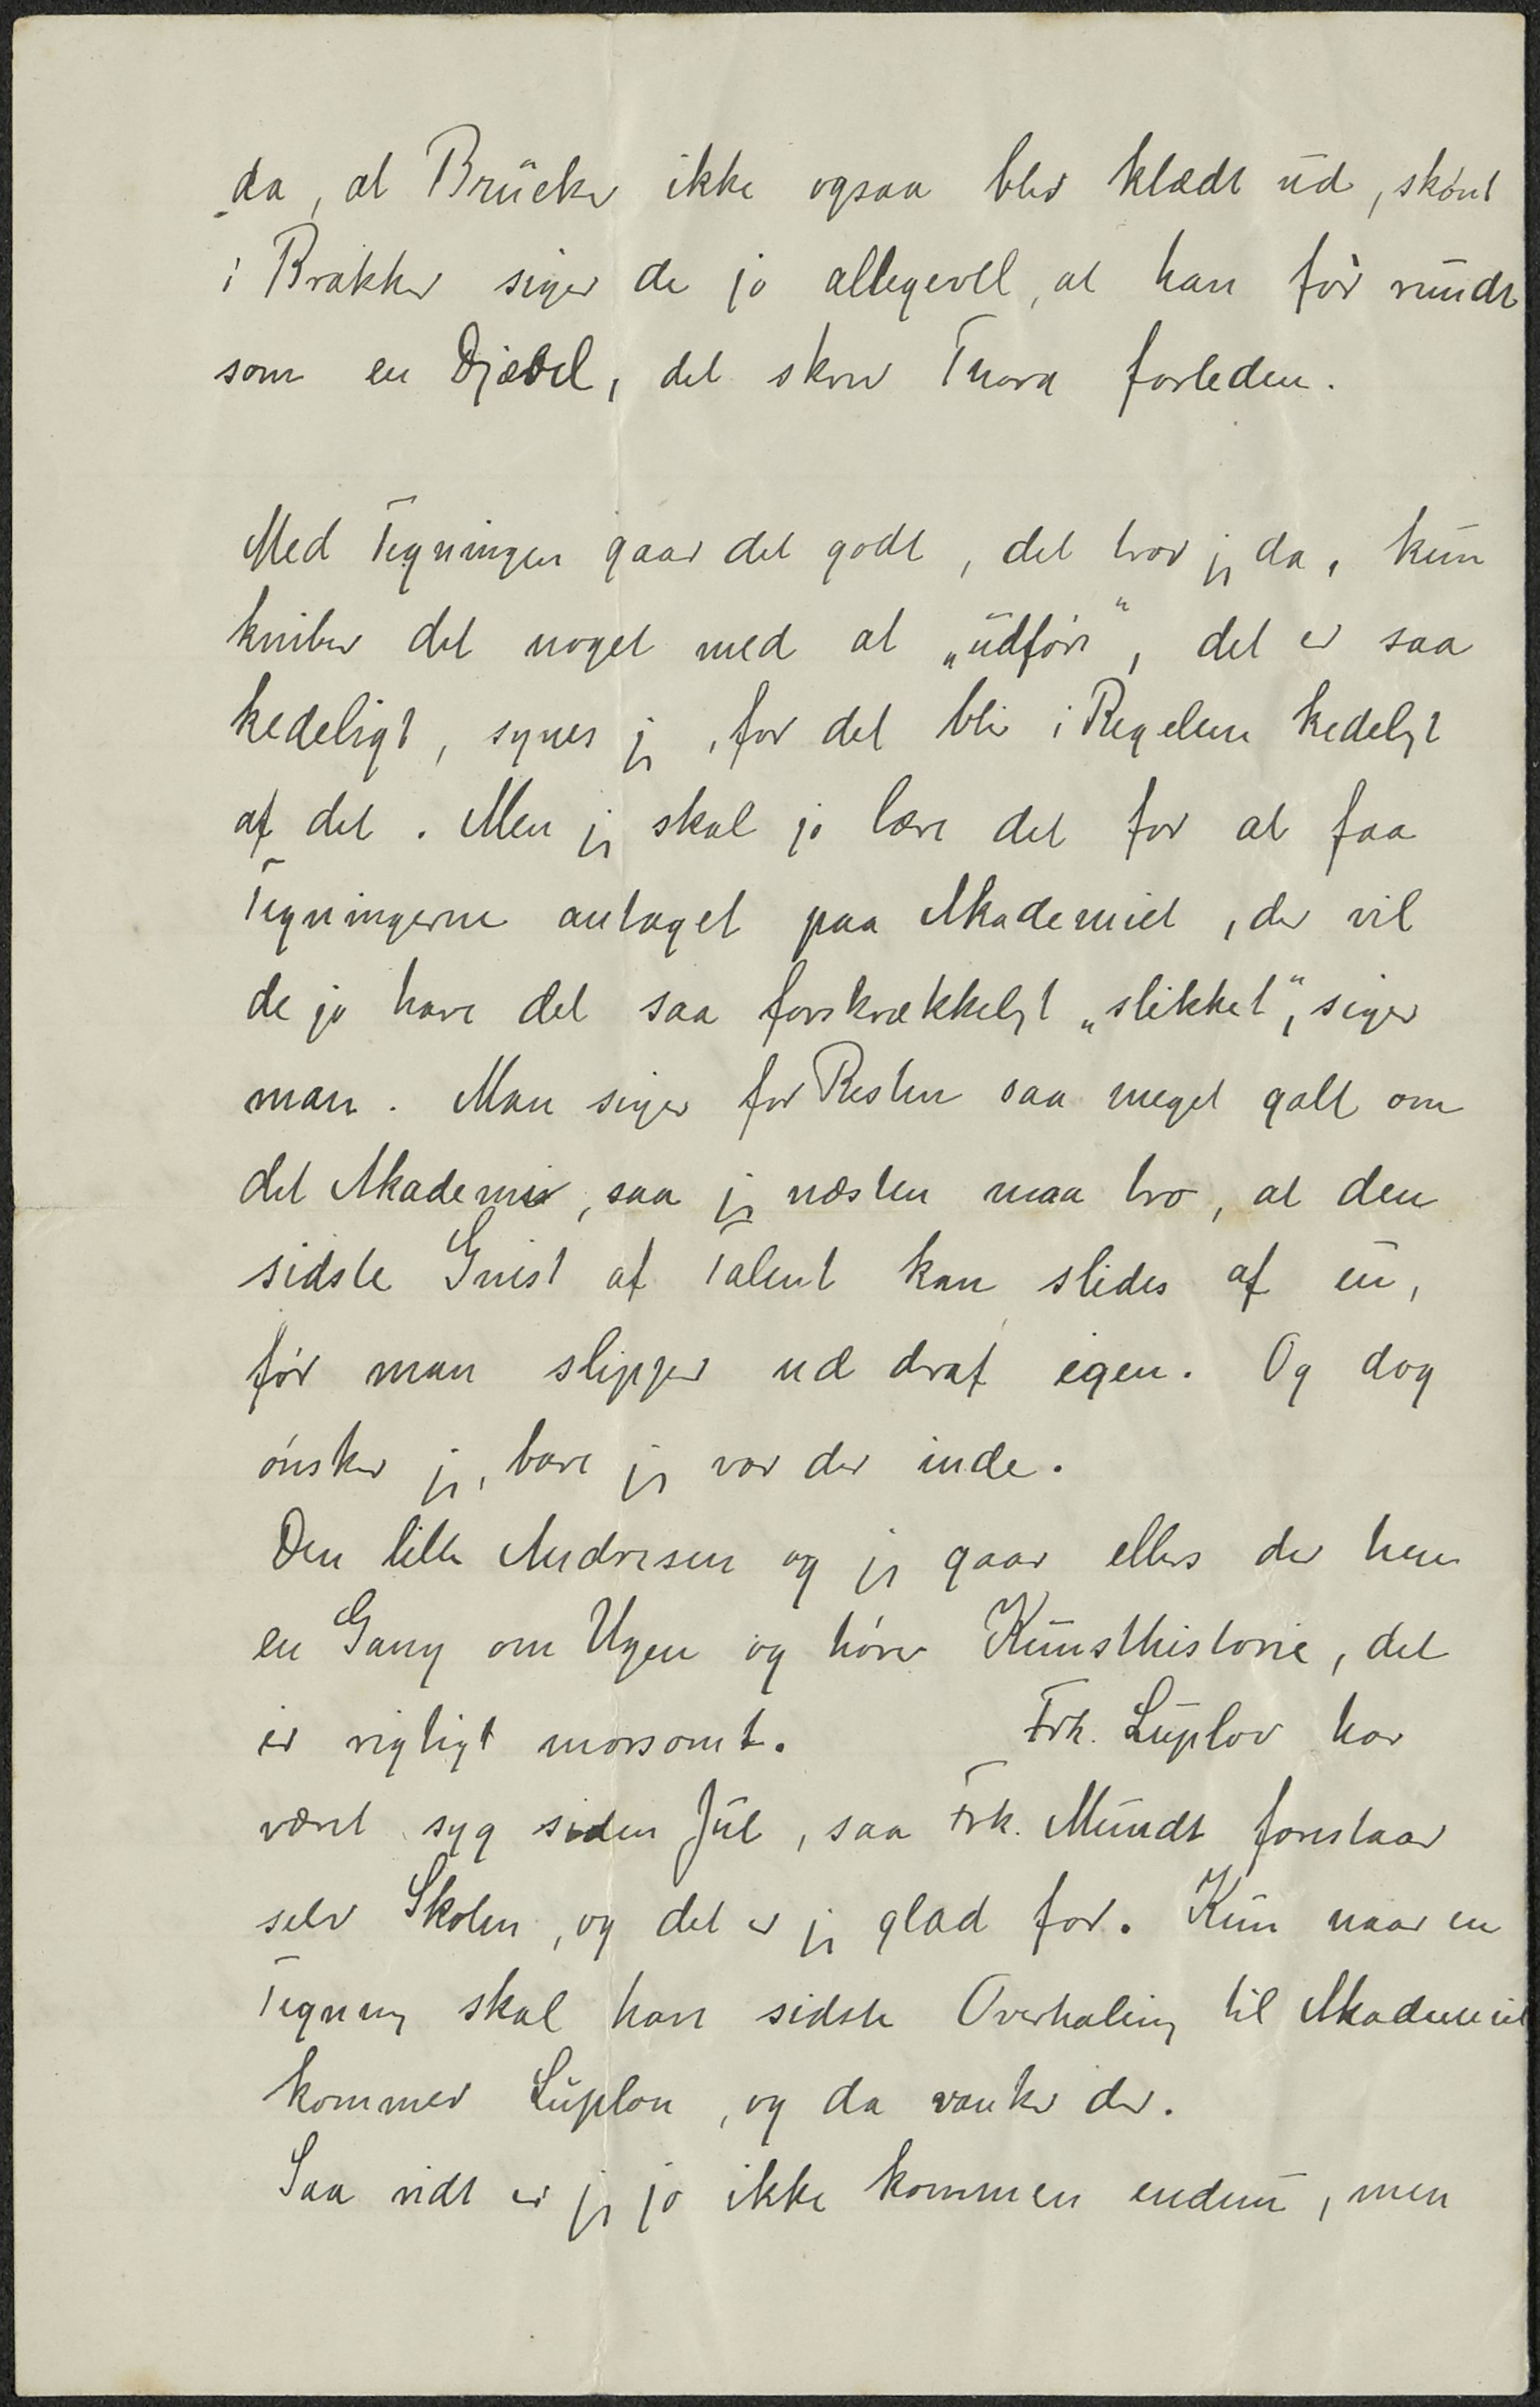 da, at Brücker ikke ogsaa blev klædt ud, skønt
i Brakker siger de jo alligevel, at han før rundt
som en Djævel, det skrev Thora forleden.
Med Tegningen gaar det godt, det tror jeg da, kun
kniber det noget med at „udføre", det er saa
kedeligt, synes jeg, for det bli'r i Regelen kedeligt
af det. Men jeg skal jo lære det for at faa
Tegningerne antaget paa Akademiet, der vil
de jo have det saa forskrækkeligt „slikket", siger
man. Man siger for Resten saa meget galt om
det Akademie, saa jeg næsten maa tro, at den
sidste Gnist af Talent kan slides af en,
før man slipper ud deraf igen. Og dog
ønsker jeg, bare jeg var der inde.
Den lille Andresen og jeg gaar ellers der hen
en Gang om Ugen og hører Kunsthistorie, det
er rigtigt morsomt. Frk. Luplov har
været syg siden Jul, saa Frk. Mundt forestaar
selv Skolen, og det er jeg glad for. Kun naar en
Tegning skal have sidste Overhaling til Akademiet
kommer Luplou, og da vanker der.
Saa vidt er jeg jo ikke kommen endnu, men